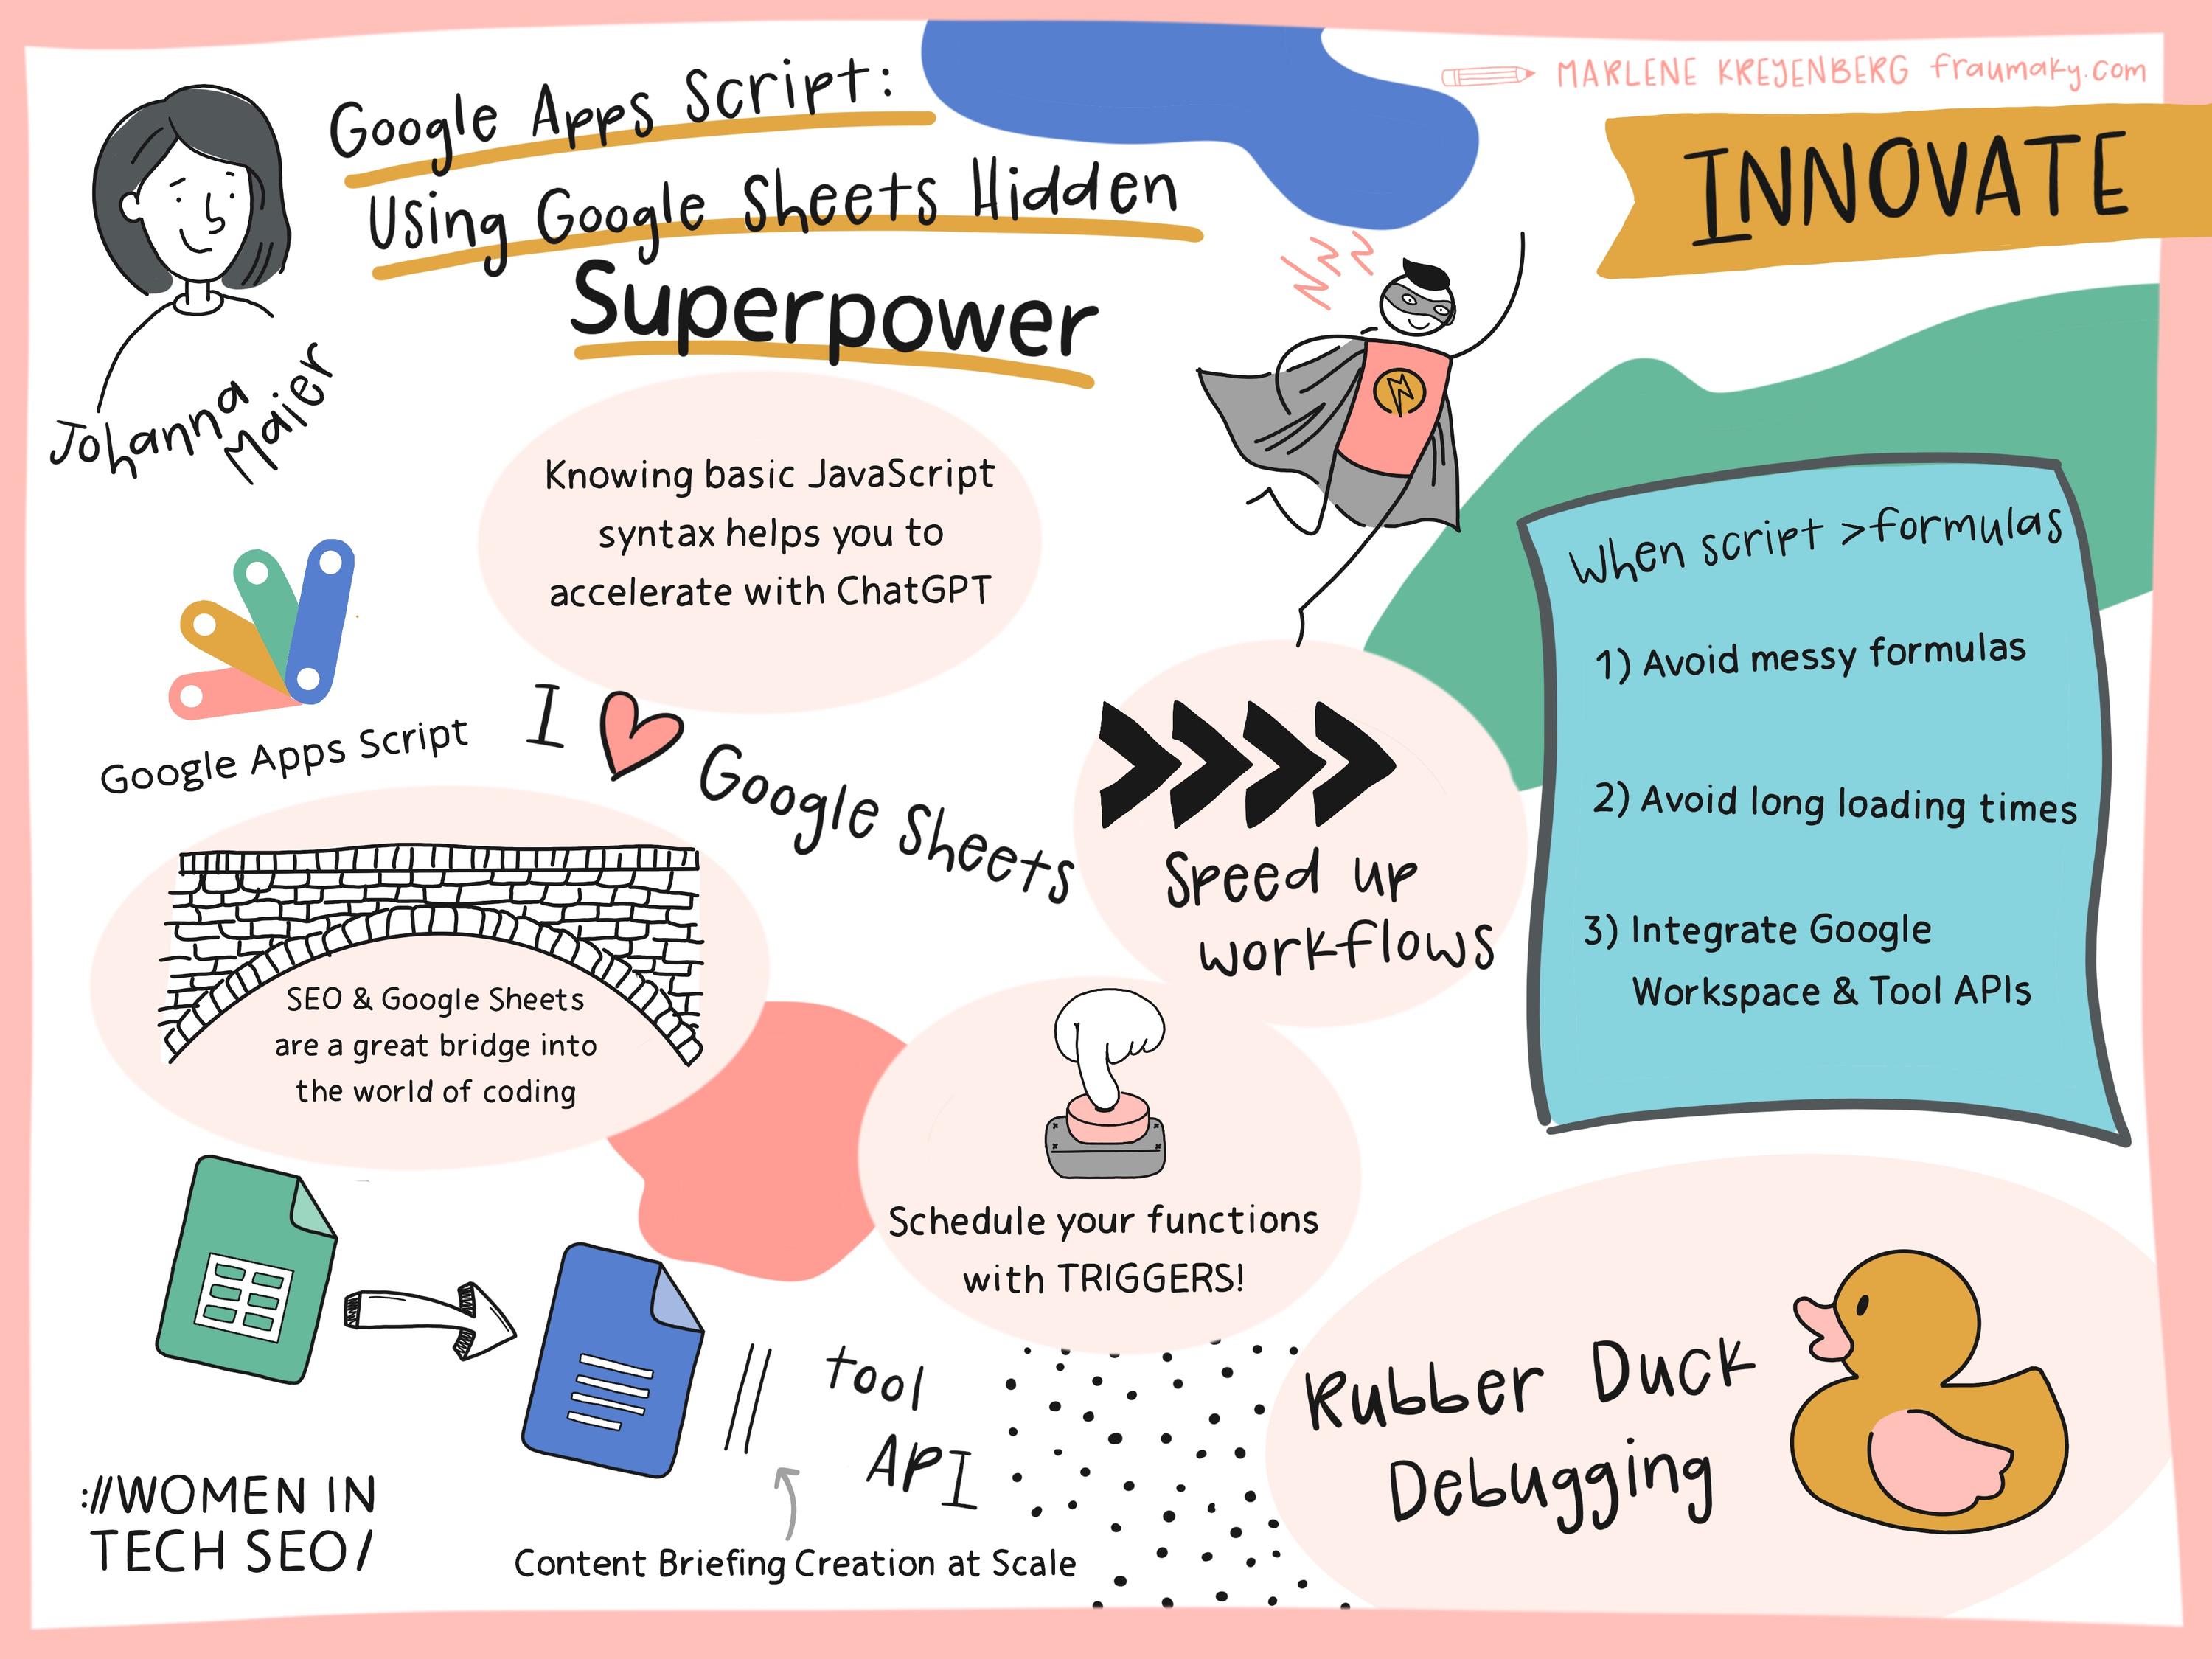 MARLENE KREJENBERG fraumaky.com
Google Apps Script:
Using Google Sheets Hidden
Superpower
INNOVATE
Johanna
Maier
Knowing basic JavaScript
syntax helps you to
accelerate with ChatGPT
When script >formulas
1) Avoid messy formulas
2) Avoid long loading times
3) Integrate Google
Workspace & Tool APIs
Google Apps Script
I ♥ Google Sheets
Speed up
workflows
SEO & Google Sheets
are a great bridge into
the world of coding
Schedule your functions
with TRIGGERS!
tool
API
Content Briefing Creation at Scale
Rubber Duck
Debugging
://WOMEN IN
TECH SEO/